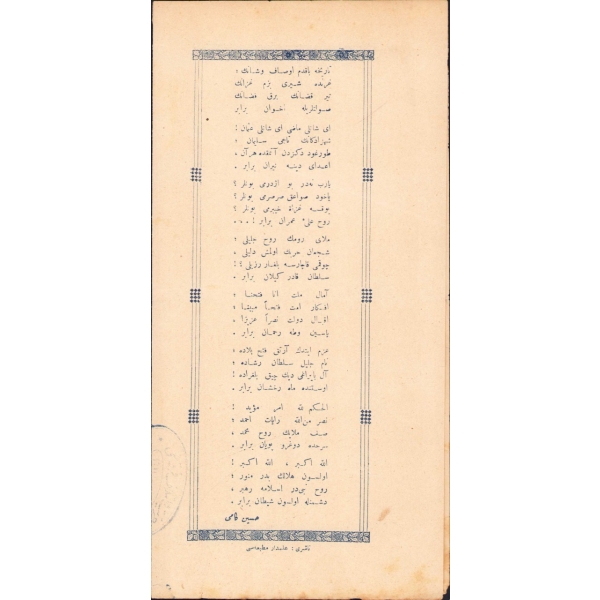 تاریخه باقدم اوصاف وشانك :
غرنده شیری بزم غزانك
تیر قضانك برق فضانك
صولتلریله اخوان برابر
ای شانلی ماضی ای شانلی عثمان !
شهزادكانك سلیمان ؛
طورغود دكزدن آنقده هر آن ،
اعدای دینه نیران برابر .
یارب نه در بو اژدرمی بونلر ؟
یاخود صواعق صرصرمی بونلر ؟
یوقسه غزاة خیبرمی بونلر ؟
روح علیٴ عمران برابر ! . . .
ملای رومك روح جلیلی ؛
شجعان حربك اولمش دلیلی ،
چوقمی قاچارسه بلغار رزیلی ؟!
سلطان قادر كیلان برابر .
آمال ملت انا فتحنا ؛
افكار امت فتحاً مبینا ؛
اقبال دولت نصراً عزیزا ؛
یاسین وطه رحمان برابر .
عزم ایتمك آرتق فتح بلاده ؛
نام جلیل سلطان رشاده ؛
آل بایراغی دیك چیق بلغراده !
اوستنده ماه رخشان برابر .
الحكم لله امر مؤید !
نصر من الله رایات احمد ؛
صف ملایك روح محمد ،
سرحده دوغرو پویان برابر .
الله اكبر ، الله اكبر !
اولسون هلالك بدر منور ؛
روح نبی در اسلامه رهبر ،
دشمنله اولسون شیطان برابر .
حسین
ناشری : علمدار مطبعه‌سی